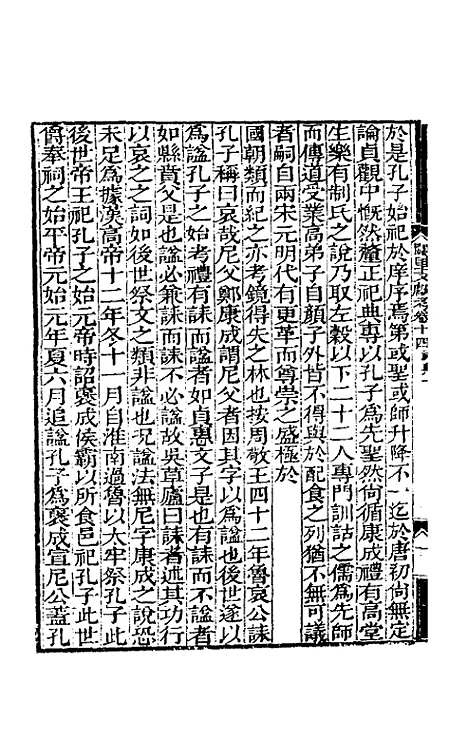 於是孔子始祀於庠序焉第或聖或師升降不一迄於唐初尚無定
論貞觀中慨然釐正祀典專以孔子為先聖然尚循康成禮有高堂
生樂有制氏之說乃取左穀以下二十二人專門訓詁之儒為先師
而傳道受業高弟子自顏子外皆不得與於配食之列猶不無可議
者嗣自兩宋元明代有更革而尊崇之盛極於
國朝類而紀之亦考鏡得失之林也按周敬王四十二年魯哀公誄
孔子稱曰哀哉尼父鄭康成謂尼父者因其字以為謚也後世遂以
為謚孔子之始考禮有誄而謚者如貞惠文子是也有誄而不謚者
如縣賁父是也謚必兼誄而誄不必謚故吳草廬曰誄者述其功行
以哀之之詞如後世祭文之類非謚也況謚法無尼字康成之說恐
未足為據漢高帝十二年冬十一月自淮南過魯以大牢祭孔子此
後世帝王祀孔子之始元帝時詔褒成侯霸以所食邑祀孔子此世
爵奉祠之始平帝元始元年夏六月追謚孔子為褒成宣尼公蓋孔